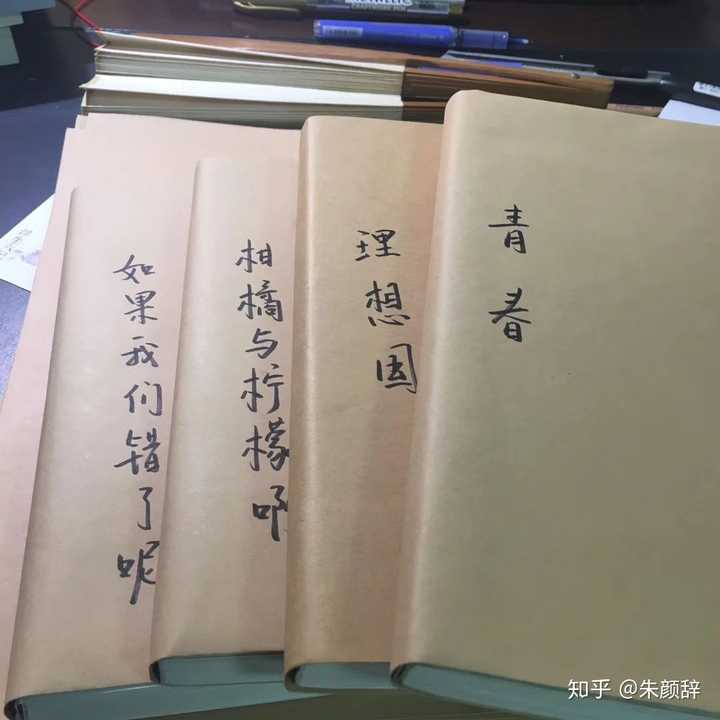 METALLIC
CRAFTWORK PEN
如果我们错了呢
柑橘与柠檬啊
理想国
青春
知乎 @朱颜辞